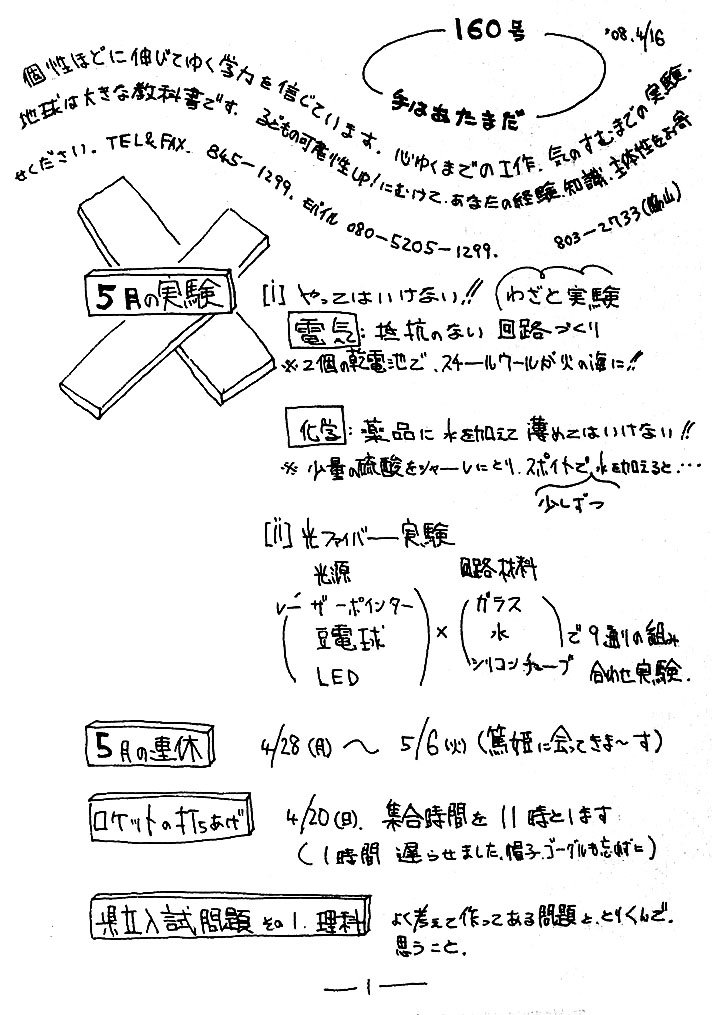 160号
'08.4/16
手はあたまだ
個性ほどに伸びてゆく学力を信じています。心ゆくまでの工作、気のすむまでの実験。
地球は大きな教科書です。子どもの可能性UP!にむけて、あなたの経験、知識、主体性をお寄
せください。TEL&FAX. 845-1299. モバイル 080-5205-1299.
803-2733(脇山)
5月の実験
[i] やってはいけない!! わざと実験
電気：抵抗のない回路づくり
※2個の乾電池で、スチールウールが火の海に!!
化学：薬品に水を加えて薄めてはいけない!!
※少量の硫酸をシャーレにとり、スポイトで水を加えると…
少しずつ
[ii] 光ファイバー実験
光源 回路材料
レーザーポインター ガラス
豆電球 × 水 で9通りの組み
LED シリコンチューブ 合わせ実験.
5月の連休 4/28(月) 〜 5/6(火) (篤姫に会ってきま〜す)
ロケットの打ちあげ 4/20(日). 集合時間を11時とします
(1時間遅らせました、帽子、ゴーグルも忘れずに)
県立入試問題その1.理科 よく考えて作ってある問題と、とりくんで、
思うこと.
— 1 —